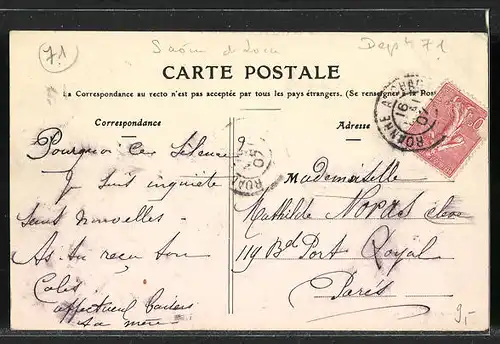 71
Saône & Loire
Dept 71
CARTE POSTALE
La Correspondance au recto n'est pas acceptée par tous les pays étrangers. (Se renseigner à la Poste
Correspondance
Adresse
Pourquoi ce Silence ?
Je suis inquiète
sans nouvelles -
As-tu reçu ton
Colis
affectueux baisers
ta mère
Mademoiselle
Mathilde élève
119 Bd Port Royal
Paris
ROANNE
16
07
9,-